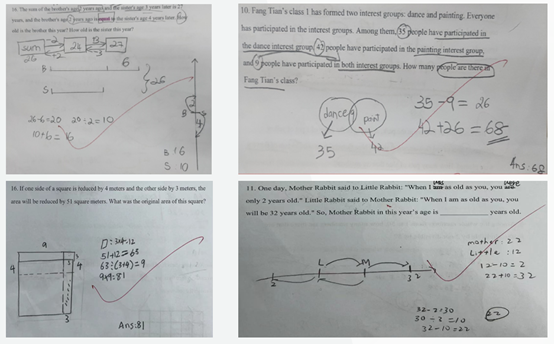 18. The sum of the brother's age 2 years ago and the sister's age 3 years later is 27
years, and the brother's age now is equal to the sister's age 6 years later. How
old is the brother this year? How old is the sister this year?
sum
-2
24
+3
27
26
+2
-3
B
6
S
26
26-6=20 20÷2=10
10+6=16
B 16
S 10
10. Fang Tian's class 1 has formed two interest groups: dance and painting. Everyone
has participated in the interest groups. Among them, 35 people have participated in
the dance interest group, 42 people have participated in the painting interest group,
and 9 people have participated in both interest groups. How many people are there in
Fang Tian's class?
dance
9
35
42
35-9=26
42+26=68
Ans:68
16. If one side of a square is reduced by 4 meters and the other side by 3 meters, the
area will be reduced by 51 square meters. What was the original area of this square?
a
3
4
9
3
51+12=63
63÷(3+4)=9
9×9=81
Ans:81
11. One day, Mother Rabbit said to Little Rabbit: "When I was as old as you, you were
only 2 years old." Little Rabbit said to Mother Rabbit: "When I am as old as you, you
will be 32 years old." So, Mother Rabbit in this year's age is years old.
mother: 22
Little: 12
12-10=2
22+10=32
2
L
M
32
32-2=30
30÷3=10
32-10=22
22